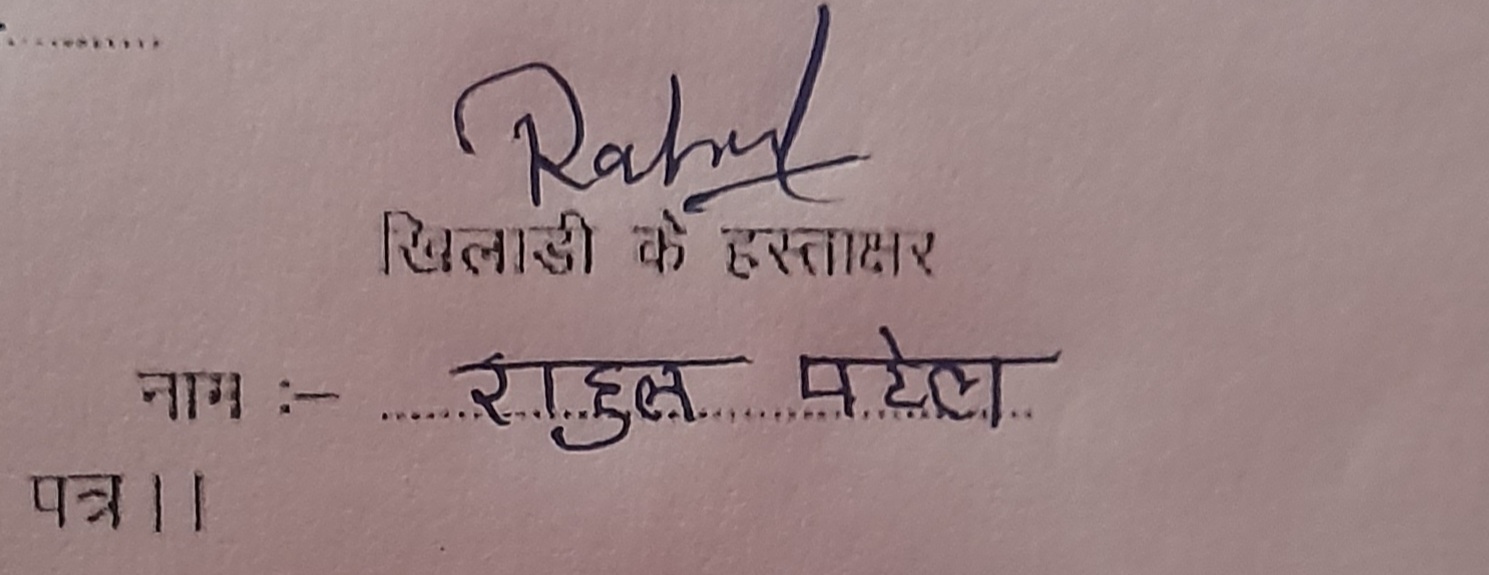 Rahul
खिलाडी के हस्ताक्षर
नाम :- राहुल पटेल
पत्र ||